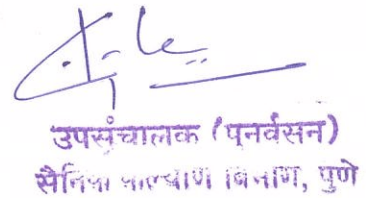 उपसंचालक (पुनर्वसन)
सैनिक कल्याण विभाग, पुणे